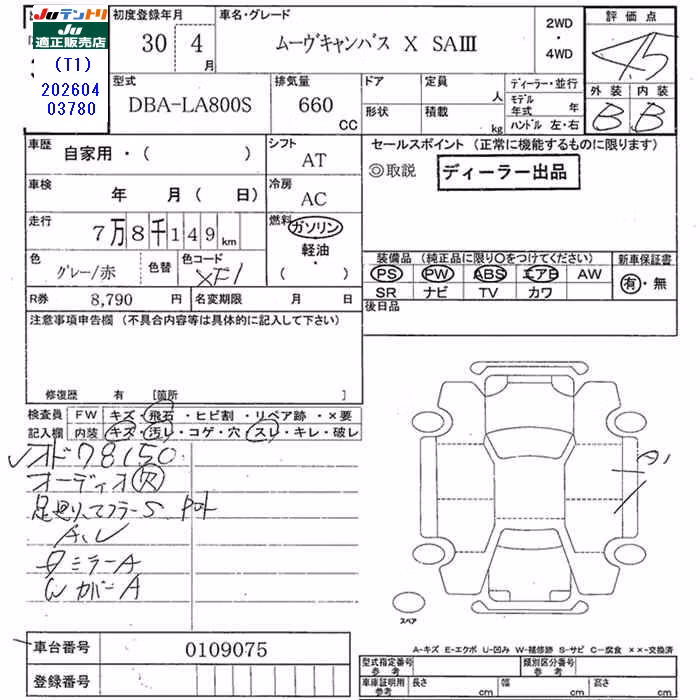 Juテントリ
JU
適正販売店
(T1)
202604
03780
初度登録年月
30 4
月
車名・グレード
ムーヴキャンバス X SAⅢ
2WD
・
4WD
評価点
4.5
外装 内装
B B
型式
DBA-LA800S
排気量
660
CC
ドア
形状
定員
人
積載
kg
ディーラー・並行
モデル
年式 年
ハンドル 左・右
車歴
自家用・( )
シフト
AT
車検
年 月 ( 日)
冷房
AC
走行
7万8千149km
燃料
ガソリン
軽油
・
( )
色
グレー/赤
色替
色コード
XF1
R券 8,790 円
名変期限 月 日
セールスポイント (正常に機能するものに限ります)
◎取説 ディーラー出品
装備品 (純正品に限り○をつけてください)
新車保証書
PS PW ABS エアB AW
SR ナビ TV カワ
有・無
後日品
注意事項申告欄 (不具合内容等は具体的に記入して下さい)
修復歴 有 [箇所 ]
検査員
記入欄
FW キズ・飛石・ヒビ割・リペア跡・×要
内装 キズ・汚レ・コゲ・穴・スレ・キレ・破レ
オド78150
オーディオ欠
足廻リ マフラーS
A、U
ミラーA
Wカバー A
A1
スペア
車台番号 0109075
登録番号
A-キズ E-エクボ U-凹み W-補修跡 S-サビ C-腐食 ××-交換済
型式指定番号
参考
類別区分番号
参考
車庫証明用
参考
長さ cm 幅 cm 高さ cm